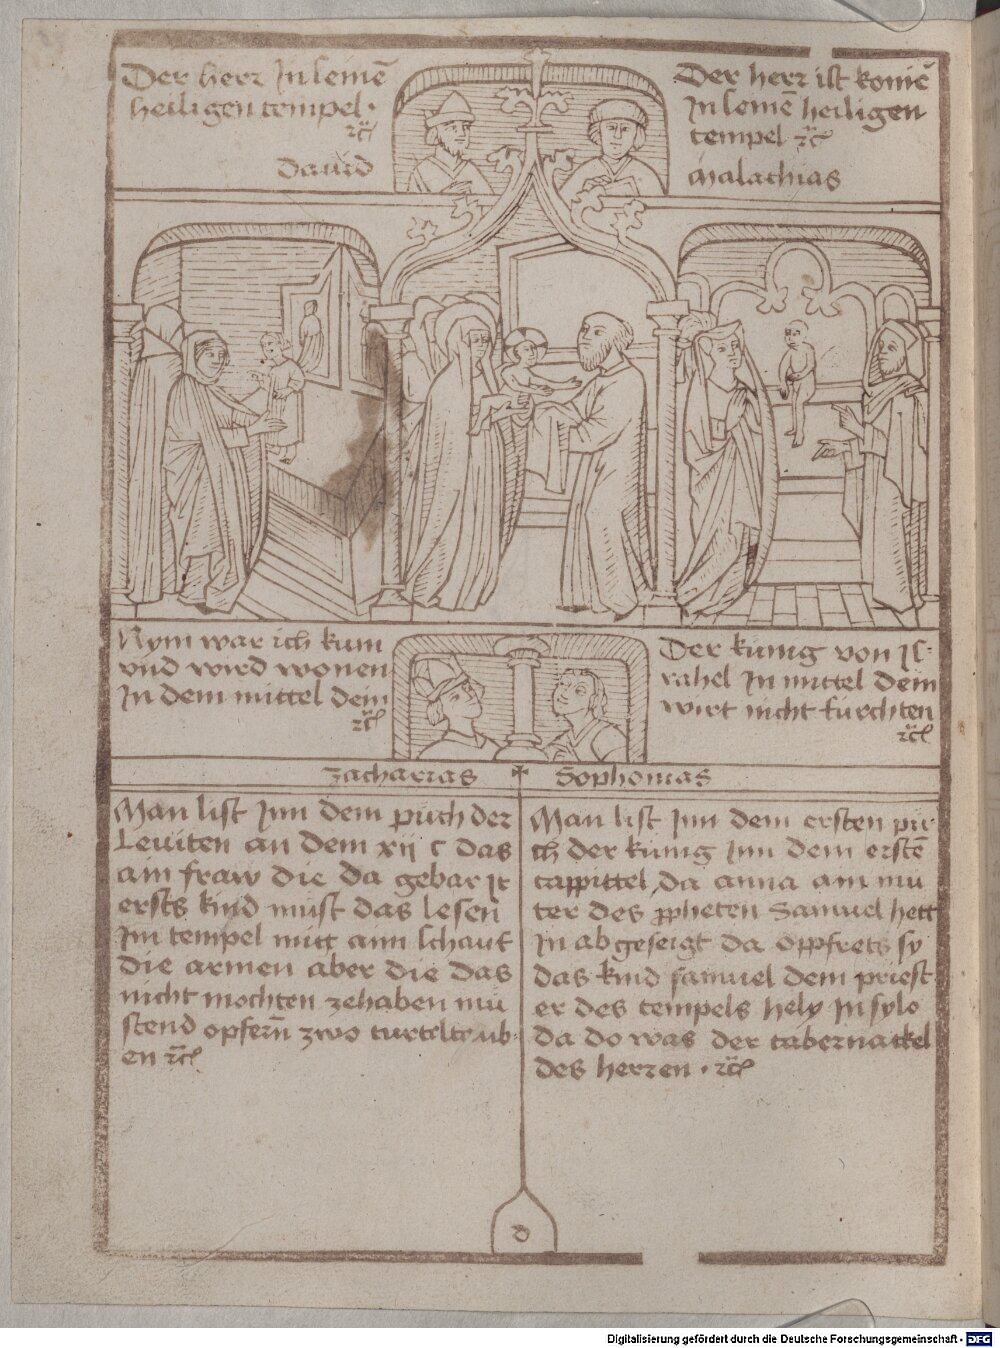 Der herr In seinē
heiligen tempel ·
ꝛc̈
dauid
Der herr ist komē
In seinē heiligen
tempel ꝛc̈
Malachias
Nym war ich kum
vnd wird wonen
In dem mittel dein
ꝛc̈
Der kunig von Is-
rahel In mittel dein
wirt nicht furchten
ꝛc̈
Zacharias
Sophonias
Man list Inn dem puch der
Leuiten an dem xij c das
ain fraw die da gebar Ir
ersts kind must das lesen
Im tempel mitt aim schauf
die armen aber die das
nicht mochten zehaben mu
stend opfern̄ zwo turteltaub
en ꝛc̄
Man list Inn dem ersten pu
ch der kunig Inn dem erstē
cappittel da anna ain mu
ter des ꝓpheten Samuel hett
In abgeseigt da oppfrets sy
das kind samuel dem priest
er des tempels hely In sylo
da do was der tabernackel
des herren · ꝛc̈
d
Digitalisierung gefördert durch die Deutsche Forschungsgemeinschaft - DFG